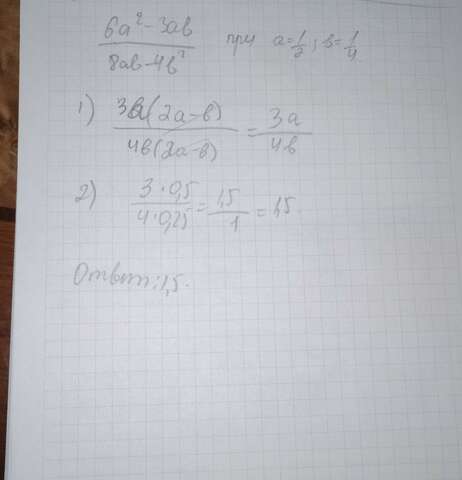 6a² - 3ab / 8ab - 4b² при a = 1/2; b = 1/4.
1) 3a(2a - b) / 4b(2a - b) = 3a / 4b
2) 3·0,5 / 4·0,25 = 1,5 / 1 = 1,5.
Ответ: 1,5.